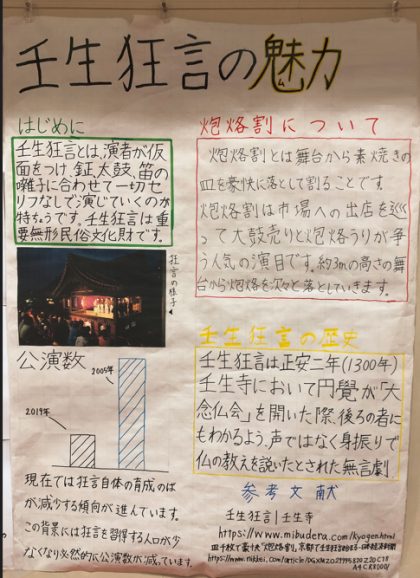 壬生狂言の魅力
はじめに
壬生狂言とは、演者が仮
面をつけ、鉦、太鼓、笛の
囃子に合わせて一切セ
リフなしで演じていくのが
特ちょうです。壬生狂言は重
要無形民俗文化財です。
狂言の様子
公演数
2005年
2019年
現在では狂言自体の育成のば
が減少する傾向が進んでいます。
この背景には狂言を習得する人口が少
なくなり必然的に公演数が減っています。
炮烙割について
炮烙割とは舞台から素焼きの
皿を豪快に落として割ることです。
炮烙割は市場への出店を巡
って太鼓売りと炮烙うりが争
う人気の演目です。約3mの高さの舞
台から炮烙を次々と落としていきます。
壬生狂言の歴史
壬生狂言は正安二年(1300年)
壬生寺において円覺が「大
念仏会」を開いた際、後ろの者に
もわかるよう、声ではなく身振りで
仏の教えを説いたとされた無言劇
参考文献
壬生狂言|壬生寺
https://www.mibudera.com/kyogen.html